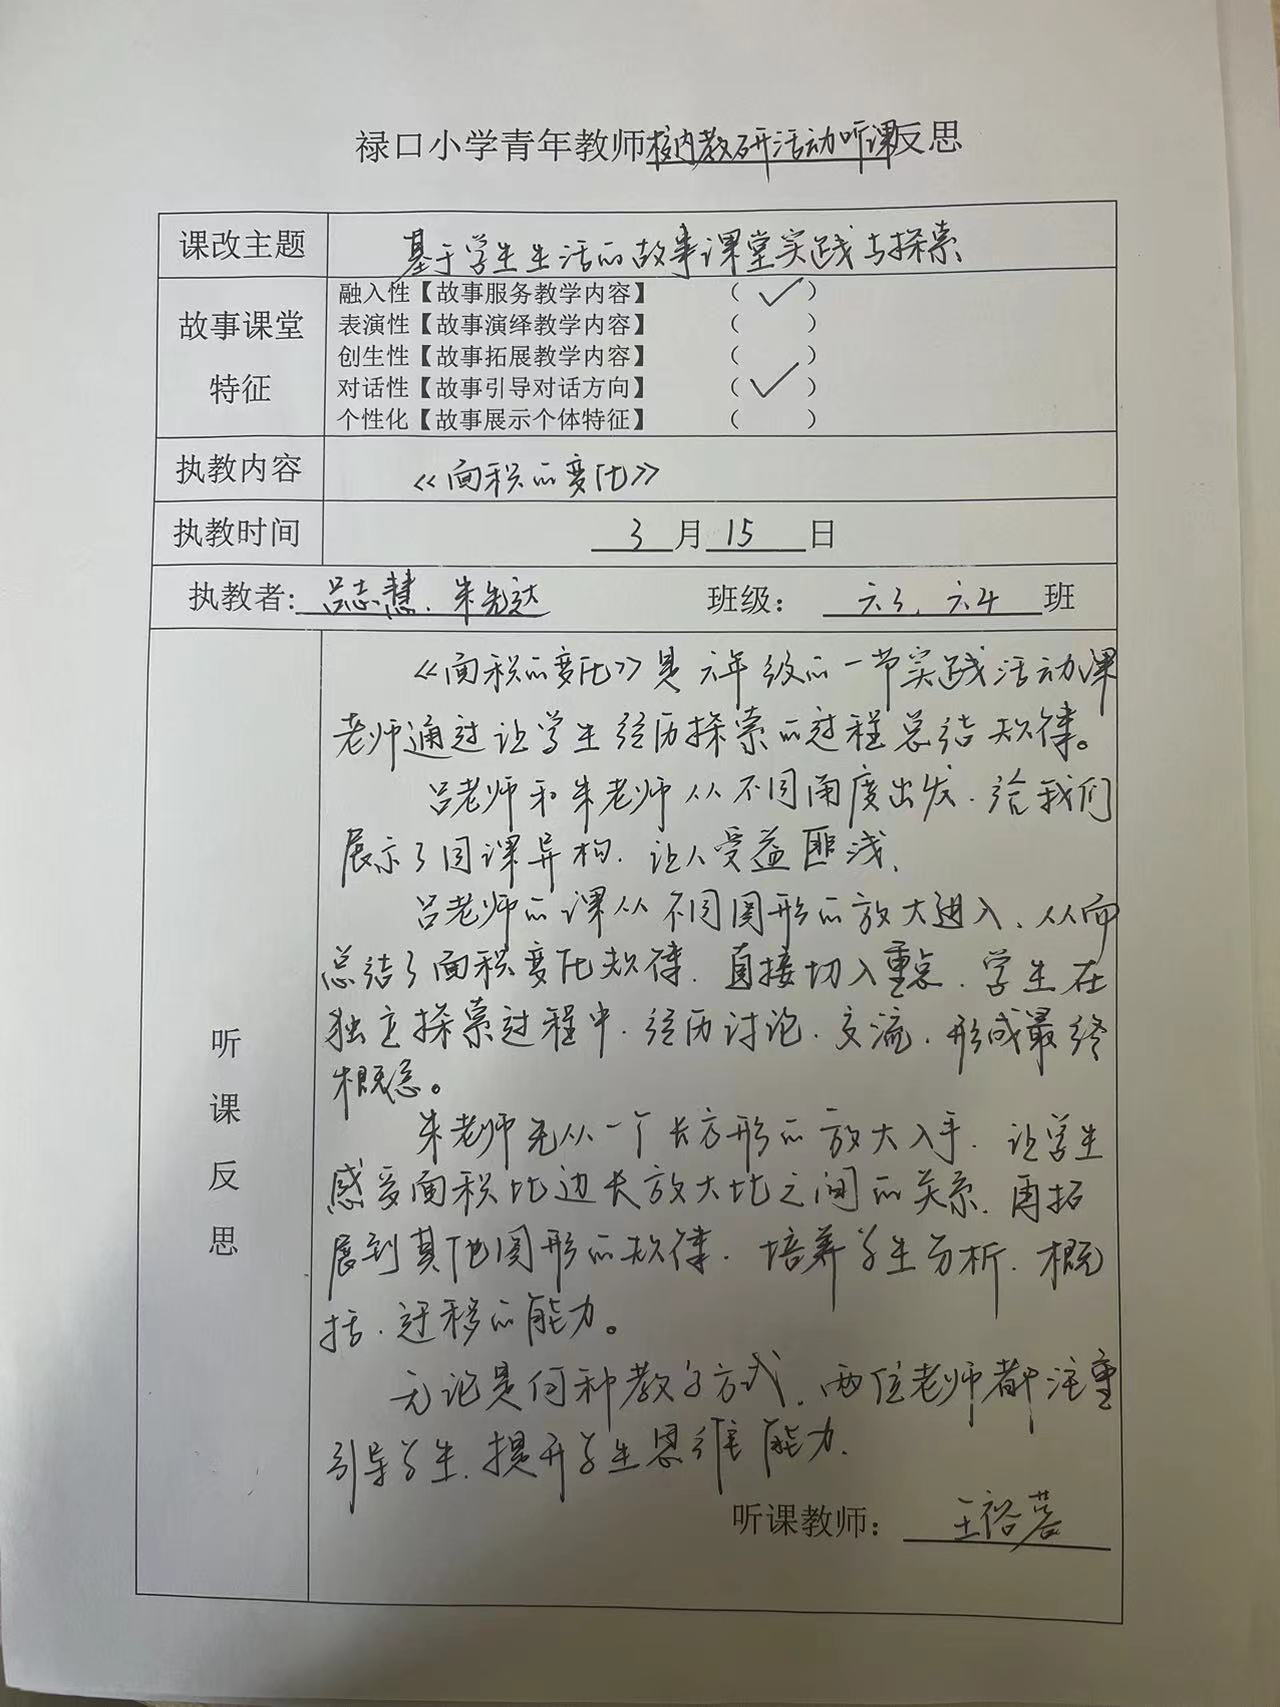 禄口小学青年教师校内教研活动听课反思
课改主题 基于学生生活的故事课堂实践与探索
故事课堂特征
融入性【故事服务教学内容】 （ ✓ ）
表演性【故事演绎教学内容】 （ ）
创生性【故事拓展教学内容】 （ ）
对话性【故事引导对话方向】 （ ✓ ）
个性化【故事展示个体特征】 （ ）
执教内容 《面积的变化》
执教时间 3月15日
执教者: 吕志慧、朱先达 班级： 六3、六4班
听课反思
《面积的变化》是六年级的一节实践活动课
老师通过让学生经历探索的过程总结规律。
吕老师和朱老师从不同角度出发，给我们
展示了同课异构，让人受益匪浅，
吕老师的课从不同图形的放大进入，从而
总结了面积变化规律，直接切入重点，学生在
独立探索过程中，经历讨论、交流，形成最终
概念。
朱老师先从一个长方形的放大入手，让学生
感受面积比边长放大比之间的关系，再拓
展到其他图形的规律，培养学生分析、概
括、迁移的能力。
无论是何种教学方式，两位老师都注重
引导学生，提升学生思维能力，
听课教师： 王裕蓉